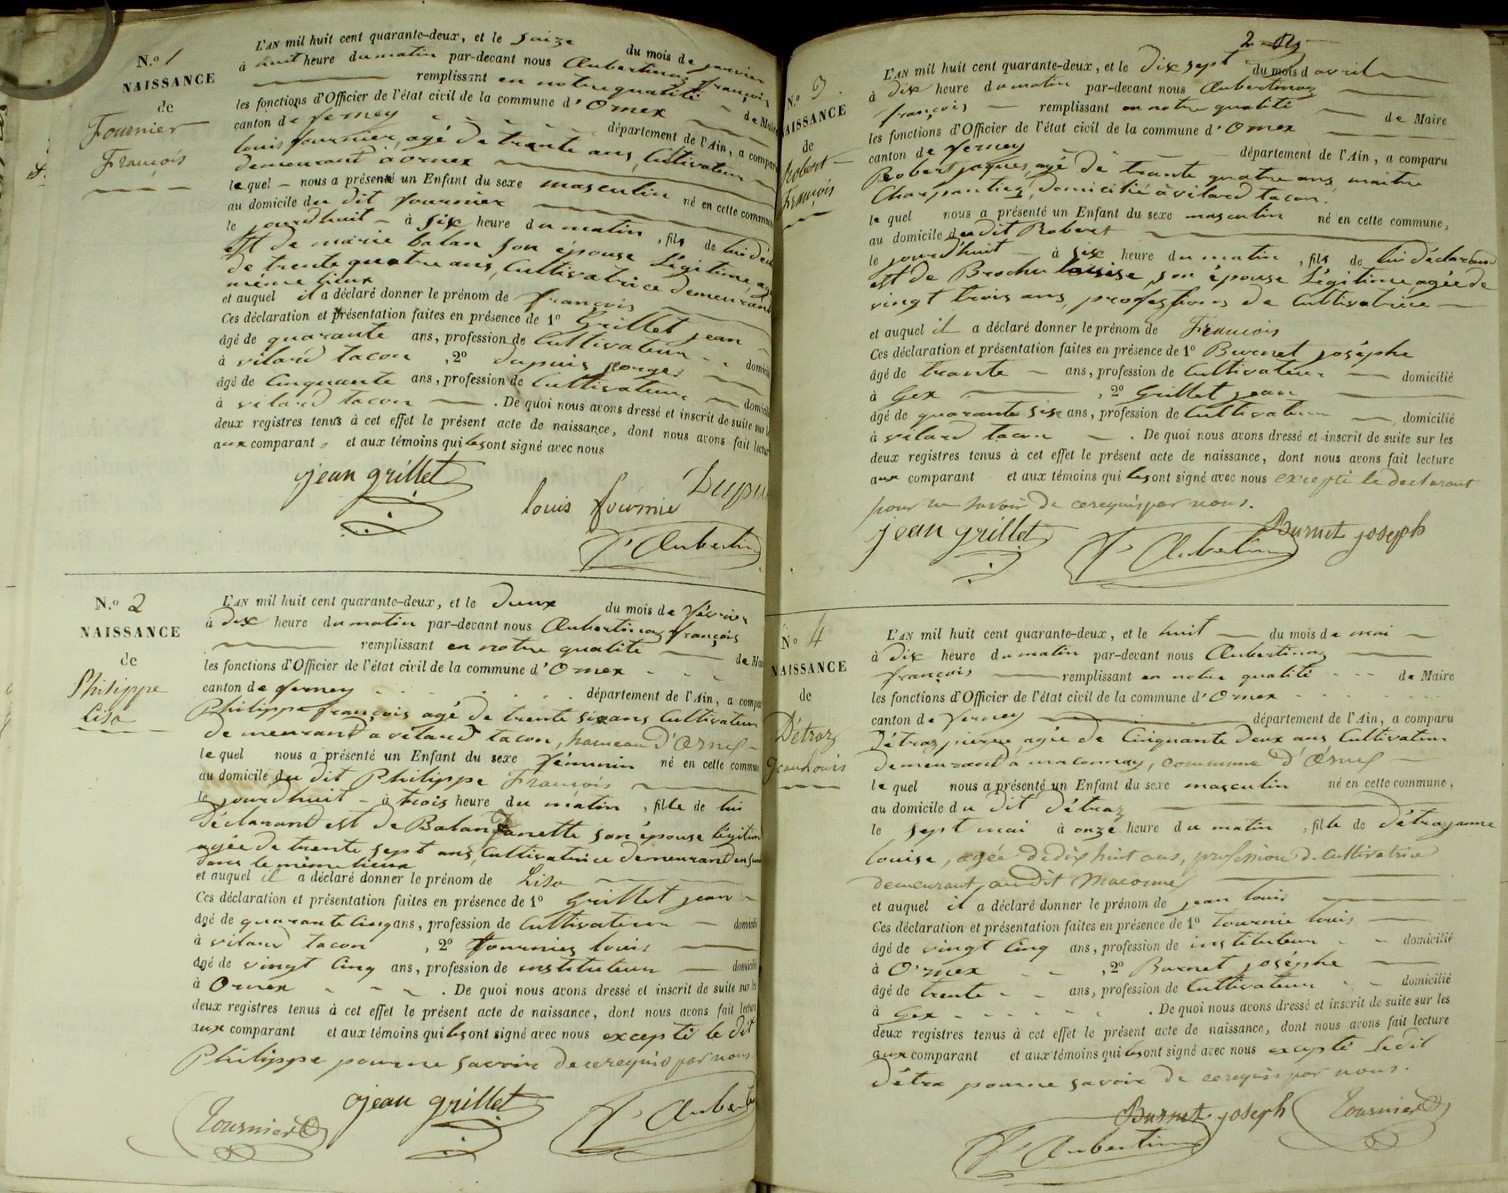 N.º 1
NAISSANCE
de
Fournier
François
L'AN mil huit cent quarante-deux, et le saize du mois de janvier
à huit heure du matin par-devant nous Aubertinaz François
remplissant en notre qualité de Maire
les fonctions d'Officier de l'état civil de la commune d'Ornex
canton de ferney département de l'Ain, a comparu
louis fournier, agé de trente ans, Cultivateur
demeurant à ornex
lequel nous a présenté un Enfant du sexe masculin né en cette commune
au domicile du dit fournier
le jourdhuit à six heure du matin, fils de lui décla
est de marie balan son épouse Légitime, agé
de trente quatre ans, Cultivatrice demeurant
même lieux
et auquel il a déclaré donner le prénom de françois
Ces déclaration et présentation faites en présence de 1º Grillet jean
âgé de quarante ans, profession de Cultivateur domicilié
à vilard tacon, 2º Dupuis jorges
âgé de Cinquante ans, profession de Cultivateur domicilié
à vilard tacon. De quoi nous avons dressé et inscrit de suite sur les
deux registres tenus à cet effet le présent acte de naissance, dont nous avons fait lecture
aux comparant, et aux témoins qui les ont signé avec nous
jean grillet
louis fournie Dupui
F. Aubertin
N.º 2
NAISSANCE
de
Philippe
Lisa
L'AN mil huit cent quarante-deux, et le deux du mois de février
à dix heure du matin par-devant nous Aubertinaz françois
remplissant en notre qualité de Maire
les fonctions d'Officier de l'état civil de la commune d'Ornex
canton de ferney département de l'Ain, a comparu
Philippe françois agé de trente six ans Cultivateur
demeurant a vilard tacon, hameau d'Ornex
lequel nous a présenté un Enfant du sexe féminin né en cette commune
au domicile du dit Philippe François
le jourdhuit à trois heure du matin, fille de lui
déclarant est de Balan Janette son épouse légitime
agée de trente sept ans, Cultivatrice demeurant
dans le même lieux
et auquel il a déclaré donner le prénom de Lisa
Ces déclaration et présentation faites en présence de 1º Grillet jean
âgé de quarante Cinq ans, profession de Cultivateur domicilié
à vilard tacon, 2º Tournier louis
âgé de vingt Cinq ans, profession de instituteur domicilié
à Ornex. De quoi nous avons dressé et inscrit de suite sur les
deux registres tenus à cet effet le présent acte de naissance, dont nous avons fait lecture
aux comparant et aux témoins qui les ont signé avec nous excepté le dit
Philippe pour ne savoir de ce requis par nous.
Tournier jean grillet F. Aubertin
2
N.º 3.
NAISSANCE
de
Robert
François
L'AN mil huit cent quarante-deux, et le dix sept du mois d'avril
à dix heure du matin par-devant nous Aubertinaz
françois remplissant en notre qualité de Maire
les fonctions d'Officier de l'état civil de la commune d'Ornex
canton de ferney département de l'Ain, a comparu
Robert jaques, agé de trante quatre ans, maitre
Charpantier, domicilié à vilard tacon.
lequel nous a présenté un Enfant du sexe masculin né en cette commune,
au domicile du dit Robert
le jourd'huit à six heure du matin, fils de lui déclarand
est de Brochu louise, son épouse Légitime agée de
vingt trois ans, profession de Cultivatrice
et auquel il a déclaré donner le prénom de François
Ces déclaration et présentation faites en présence de 1º Burnet joséphe
âgé de trante ans, profession de Cultivateur domicilié
à Gex, 2º Grillet jean
âgé de quarante six ans, profession de Cultivateur domicilié
à vilard tacon. De quoi nous avons dressé et inscrit de suite sur les
deux registres tenus à cet effet le présent acte de naissance, dont nous avons fait lecture
aux comparant et aux témoins qui les ont signé avec nous excepté le declarant
pour ne savoir de ce requis par nous.
jean grillet F. Aubertin Burnet joseph
Nº 4
NAISSANCE
de
Détraz
Jean Louis
L'AN mil huit cent quarante-deux, et le huit du mois de mai
à dix heure du matin par-devant nous Aubertinaz
françois remplissant en notre qualité de Maire
les fonctions d'Officier de l'état civil de la commune d'Ornex
canton de ferney département de l'Ain, a comparu
Détraz pierre, agée de Cinquante deux ans Cultivateur
demeurant a maconney, commune d'Ornex
lequel nous a présenté un Enfant du sexe masculin né en cette commune,
au domicile du dit détraz
le sept mai à onze heure du matin, fils de détraz janne
louise, agée de dix huit ans, profession de Cultivatrice
demeurant, au dit Maconnex
et auquel il a déclaré donner le prénom de jean louis
Ces déclaration et présentation faites en présence de 1º tournie louis
âgé de vingt Cinq ans, profession de instituteur domicilié
à Ornex, 2º Burnet joséphe
âgé de trente ans, profession de Cultivateur domicilié
à Gex. De quoi nous avons dressé et inscrit de suite sur les
deux registres tenus à cet effet le présent acte de naissance, dont nous avons fait lecture
aux comparant et aux témoins qui les ont signé avec nous excepté Ledit
détra pour ne savoir de ce requis par nous.
Burnet joseph Tournier
F. Aubertin